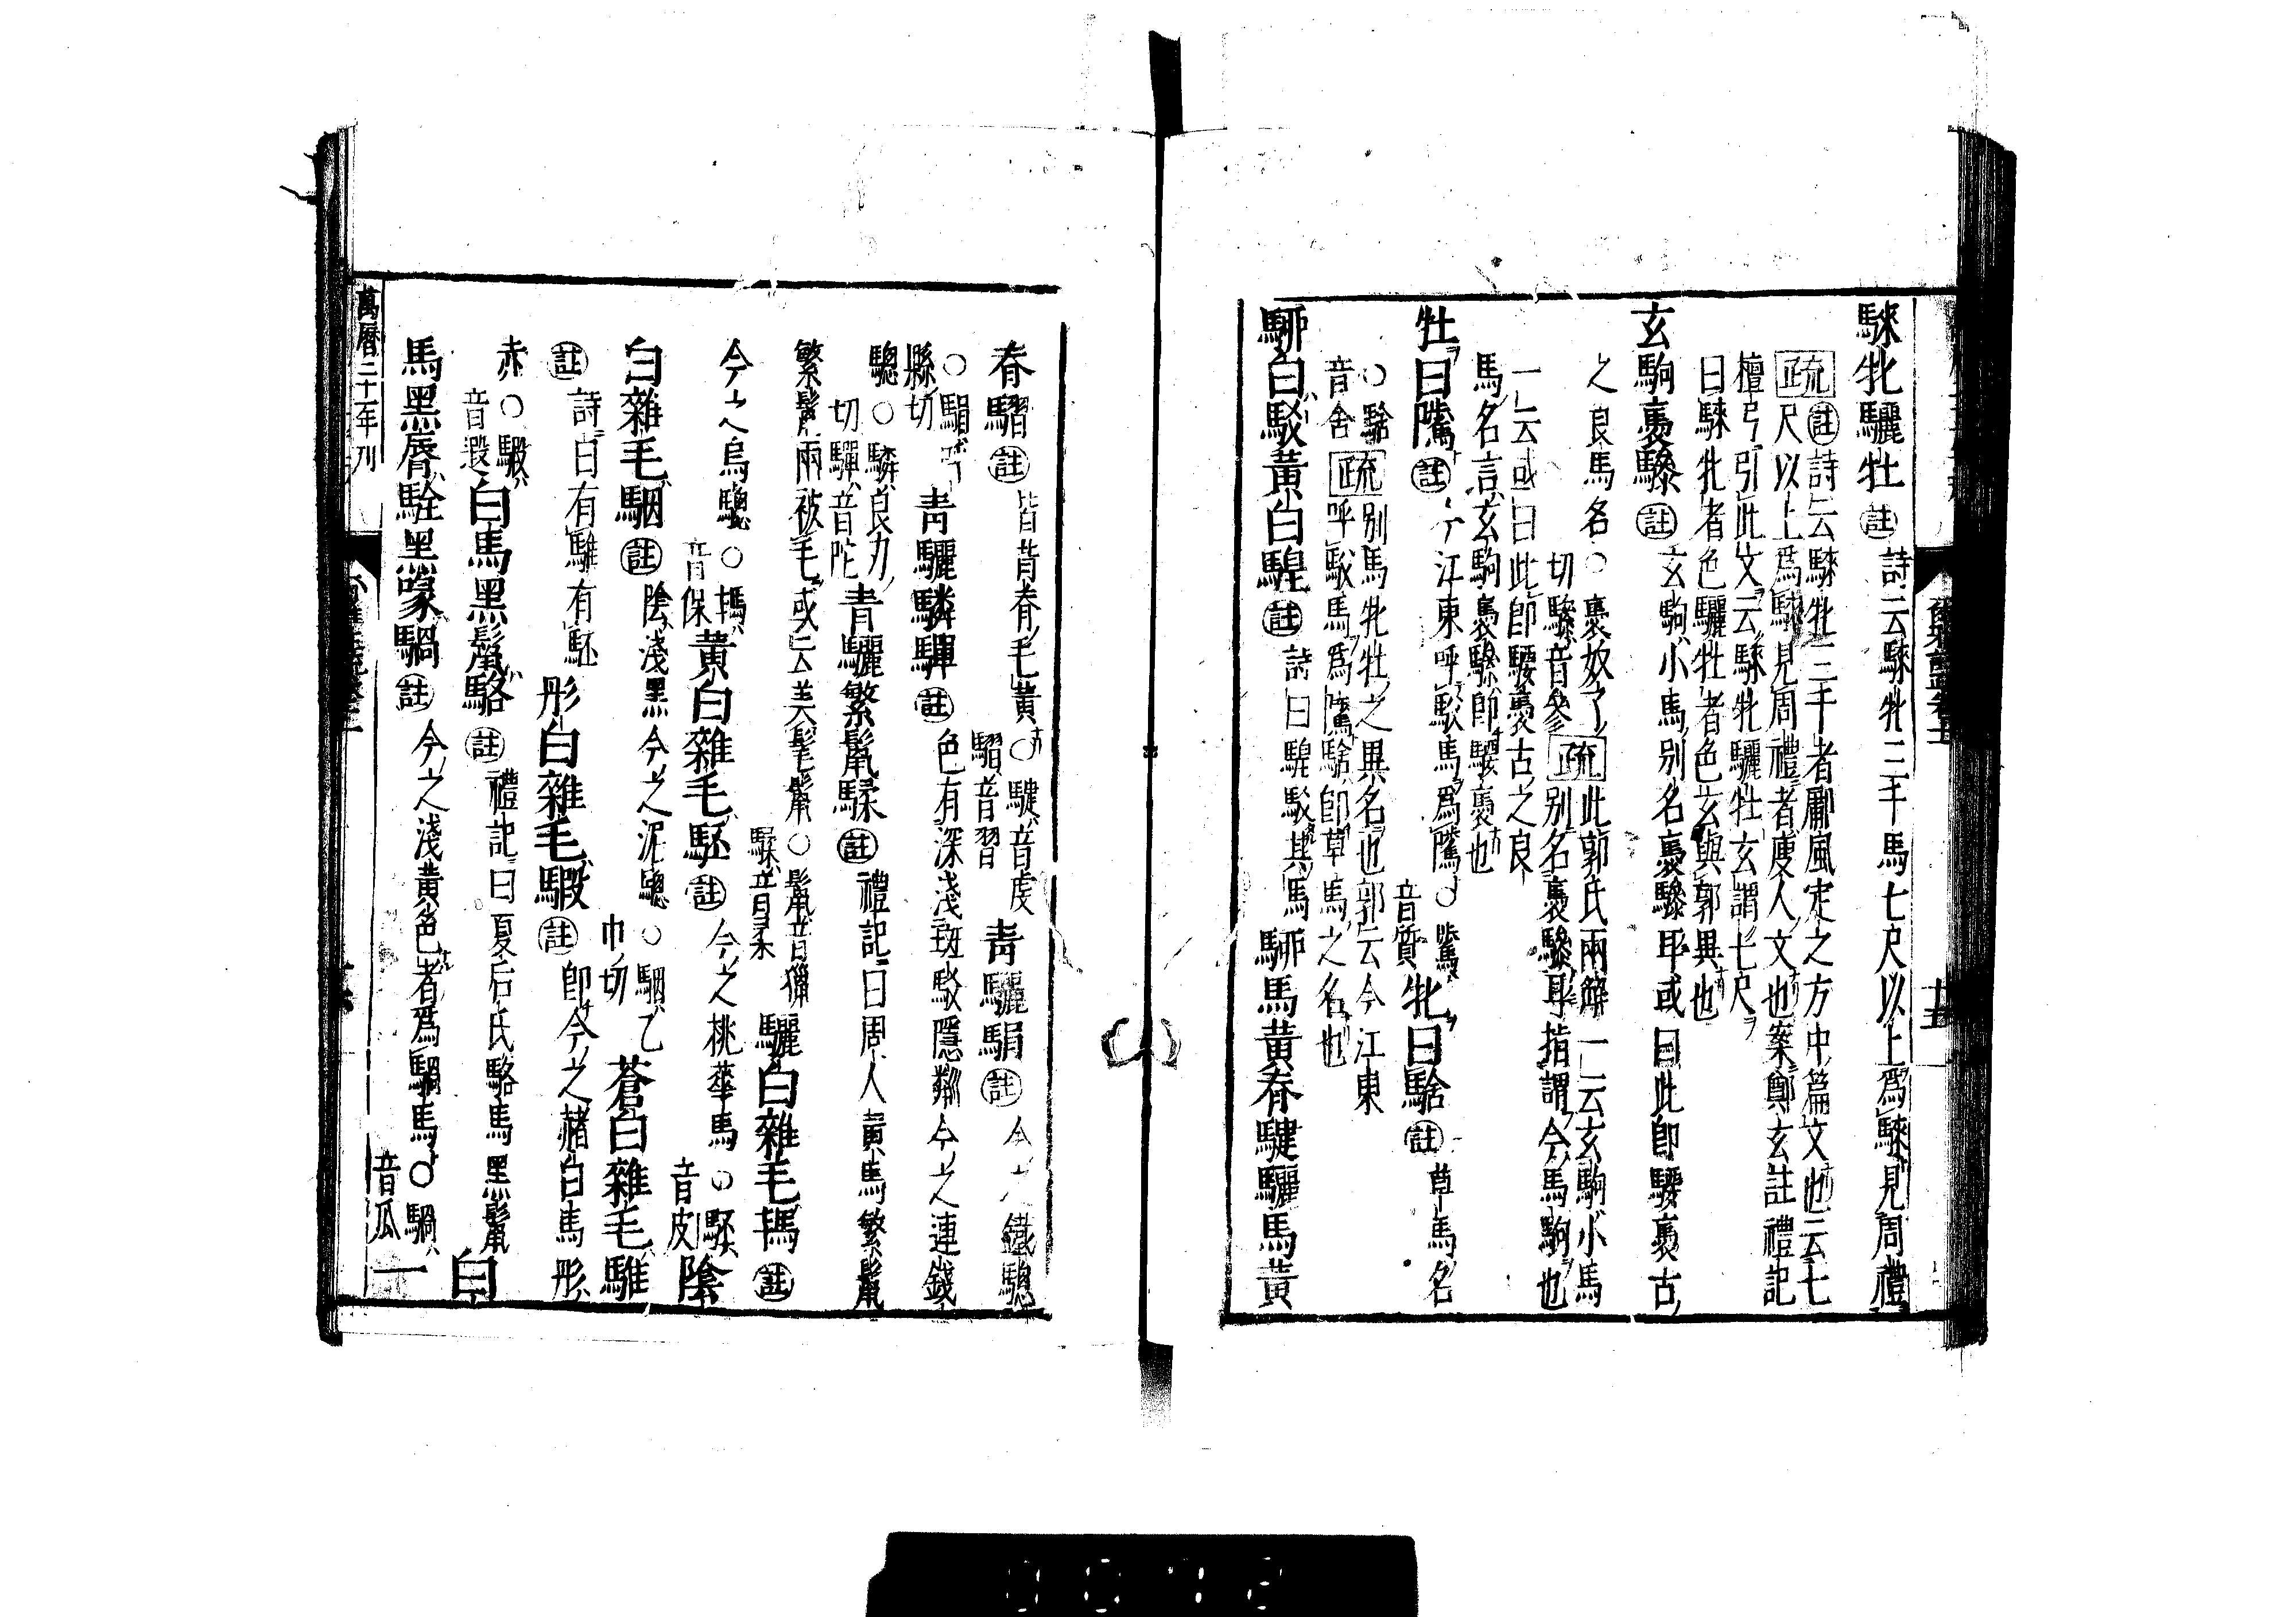 騋牝驪牡註詩云騋牝三千馬七尺以上爲騋見周禮
疏註詩云騋牝三千者鄘風定之方中篇文也云七
尺以上爲騋見周禮者廋人文也案鄭玄註禮記
檀弓引此文云騋牝驪牡玄謂七尺
曰騋牝者色驪牡者色玄與郭異也
玄駒褭驂註玄駒小馬別名褭驂耳或曰此即騕褭古
之良馬名○褭奴了
切驂音參疏此郭氏兩解一云玄駒小馬
別名褭驂耳指謂今馬駒也
一云或曰此即騕褭古之良
馬名言玄駒褭驂即騕褭也
牡曰騭註今江東呼駁馬爲騭○騭
音質牝曰騇註草馬名
○騇
音舍疏別馬牝牡之異名也郭云今江東
呼駁馬爲騭騇即草馬之名也
駵白駁黃白騜註詩曰騜駁其馬駵馬黃脊騝驪馬黃
脊騽註皆背脊毛黃○騝音虔
騽音習青驪駽註今之鐵驄
○駽呼
縣切青驪驎驒註色有深淺斑駁隱粼今之連錢
驄○驎良刃
切驒音陀青驪繁鬣騥註禮記曰周人黃馬繁鬣
繁鬣兩被毛或云美髦鬣○鬣音獵
騥音柔驪白雜毛駂註
今之烏驄○駂
音保黃白雜毛駓註今之桃華馬○駓
音皮陰
白雜毛駰註陰淺黑今之泥驄○駰乙
巾切蒼白雜毛騅
註詩曰有騅有駓彤白雜毛騢註即今之赭白馬彤
赤○騢
音遐白馬黑鬣駱註禮記曰夏后氏駱馬黑鬣白
馬黑脣駩黑喙騧註今之淺黃色者爲騧馬○騧
音瓜一
萬曆二十一年刊